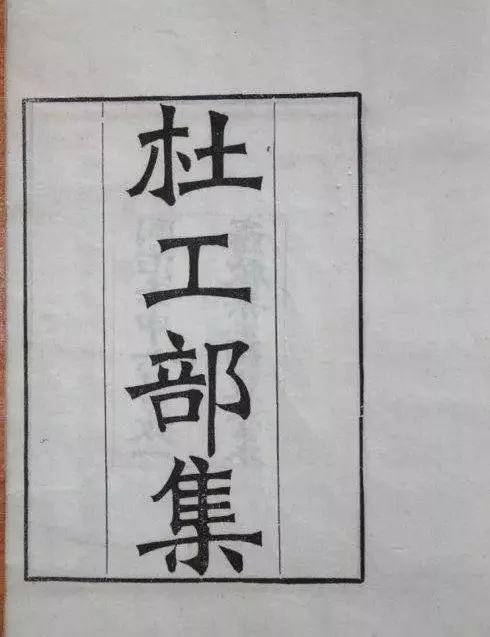 杜工部集